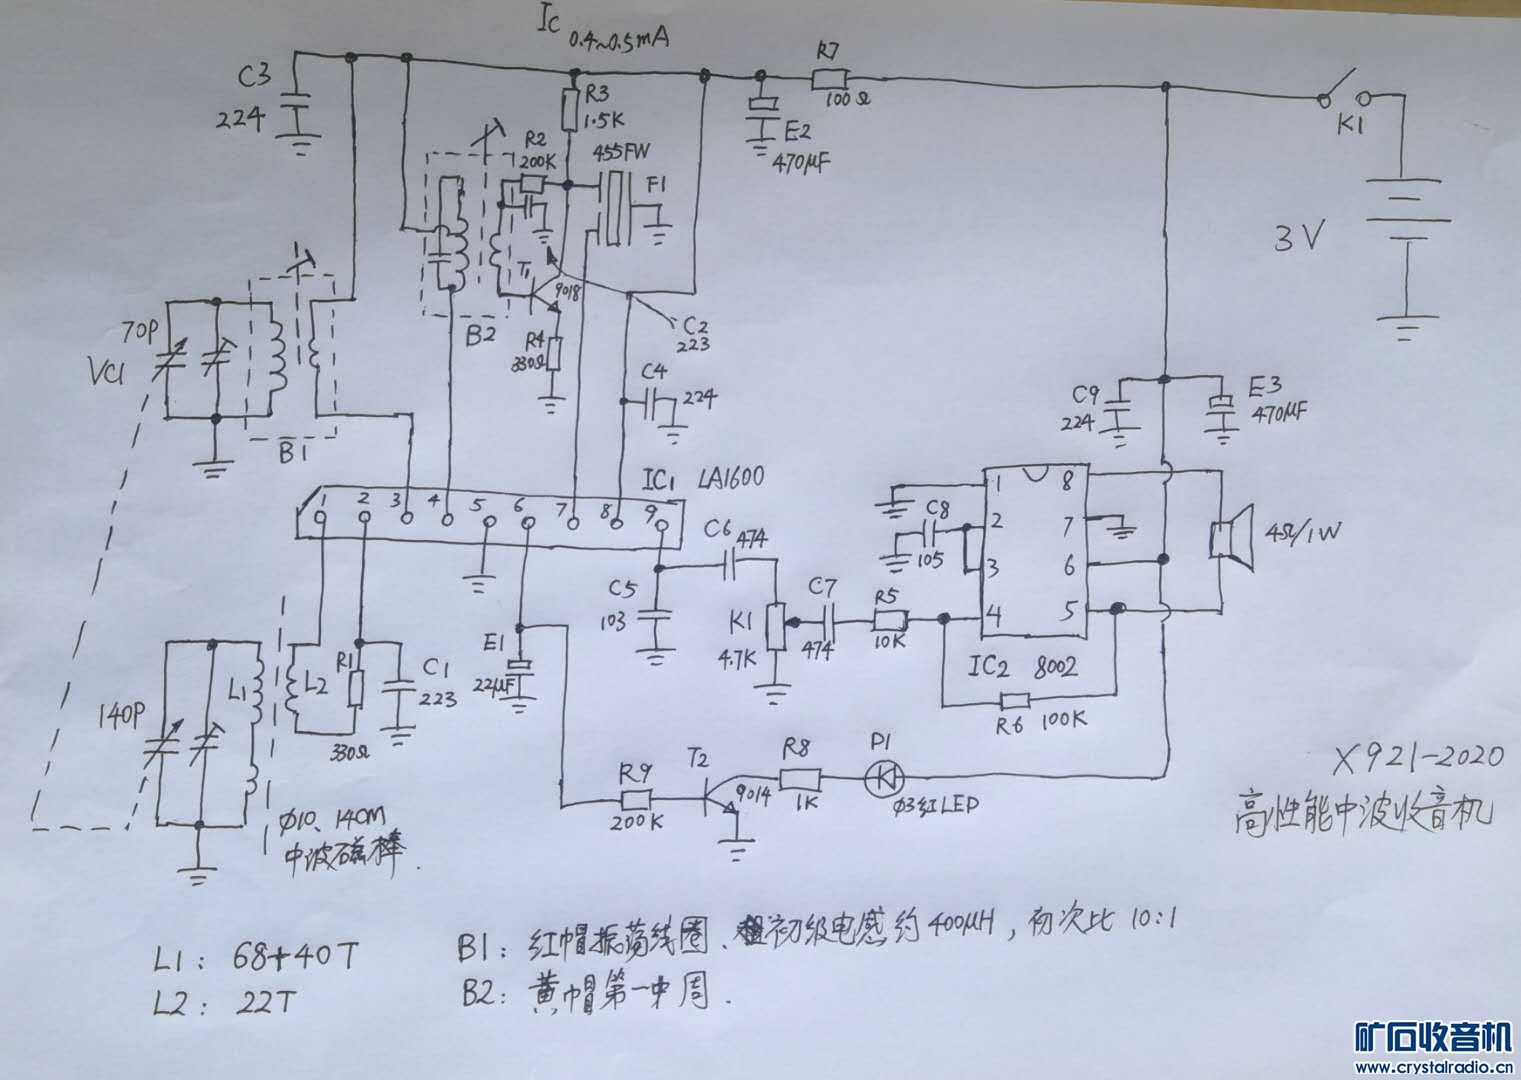 Ic 0.4~0.5mA
C3
224
R3
1.5K
R7
100Ω
E2
470μF
K1
3V
R2
200K
455FW
F1
T1
9018
B2
R4
330Ω
C2
223
C4
224
70P
VC1
B1
C9
224
E3
470μF
IC1 LA1600
1 2 3 4 5 6 7 8 9
C6
474
C5
103
K1
4.7K
C7
474
R5
10K
C8
105
1 2 3 4
8 7 6 5
4Ω/1W
IC2 8002
R6 100K
E1
22μF
140P
L1
L2
R1
330Ω
C1
223
Φ10、140M
中波磁棒.
R9
200K
T2
9014
R8
1K
D1
Φ3红LED
X921-2020
高性能中波收音机
L1: 68+40T
L2: 22T
B1: 红帽振荡线圈、初级电感约400μH, 初次比10:1
B2: 黄帽第一中周.
矿石收音机
www.crystalradio.cn